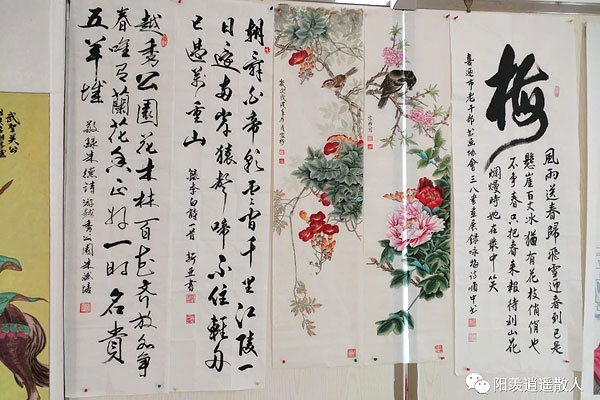 武聖关公
越秀公園花木林百花齐放各争
春唯有蘭花香正好一时名貴
五羊城
敬録朱德诗游越秀公園
朝辞白帝彩云间千里江陵一
日还两岸猿聲啼不住輕舟
已過萬重山
録李白詩一首 新亚書
梅
風雨送春歸飛雪迎春到已是
懸崖百丈冰猶有花枝俏俏也
不争春只把春来報待到山花
爛熳時她在叢中笑
喜迎市老干部书画协會三八書画展録咏梅詩
阳羡逍遥散人